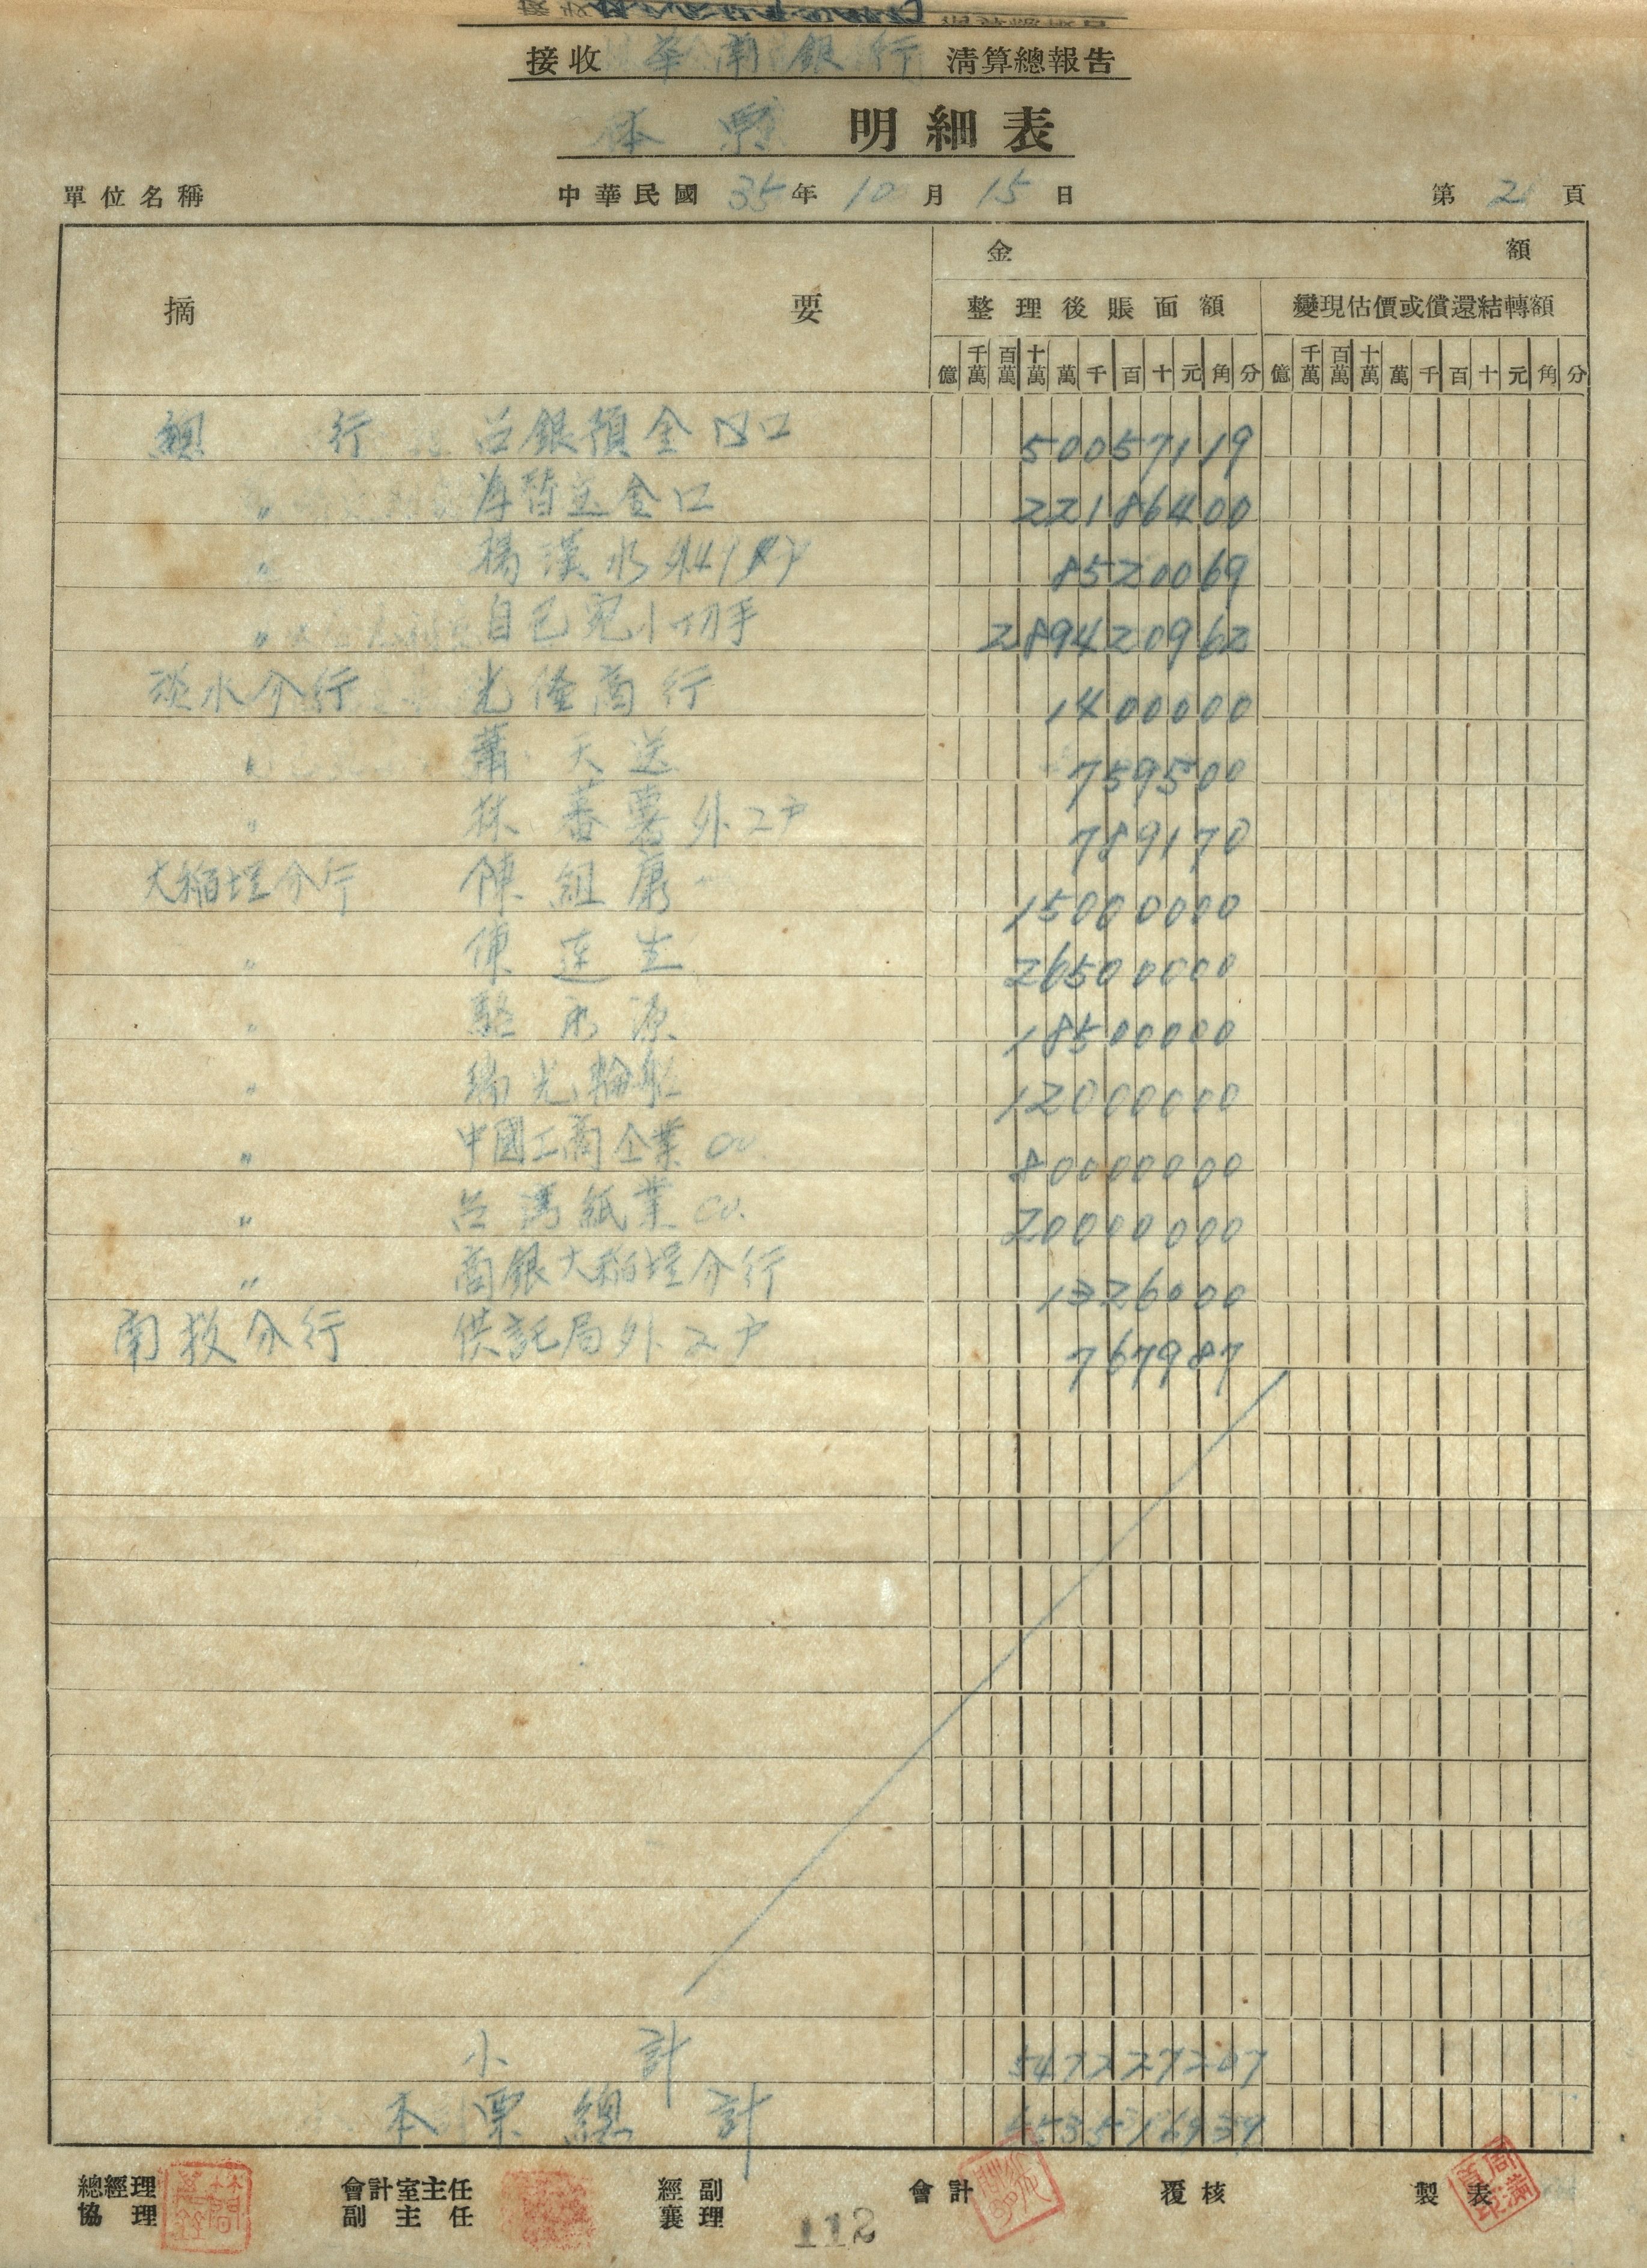 接收 華南銀行 淸算總報告
本票 明細表
單位名稱 中華民國 35 年 10 月 15 日 第 2 頁
金 額
摘 要 整理後賬面額 變現估價或償還結轉額
億 千萬 百萬 十萬 萬 千 百 十 元 角 分 億 千萬 百萬 十萬 萬 千 百 十 元 角 分
總 行 台銀預金口 50057119
〃 金口 22186400
〃 楊漢水外 8520069
〃 自己宛小切手 289420962
淡水分行 光隆商行 1400000
〃 蕭天送 759500
〃 林蕃薯外2戶 789170
大稻埕分行 陳組康 15000000
〃 陳連生 26500000
〃 駱水源 18500000
〃 瑞光輪船 12000000
〃 中國工商企業co. 80000000
〃 台湾紙業co. 20000000
〃 商銀大稻埕分行 1326000
南投分行 供託局外2戶 767987
小 計 547227207
本票總計
總經理 會計室主任 經副 會計 覆核 製表
協理 副主任 襄理
112